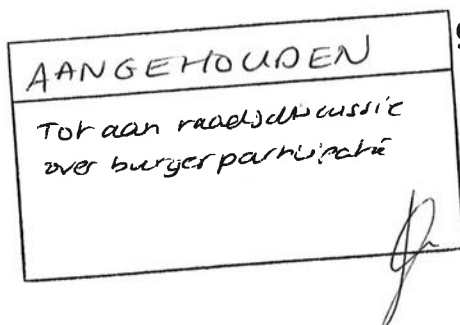 AANGEHOUDEN
Tot aan raadsdiscussie
over burgerparticipatie